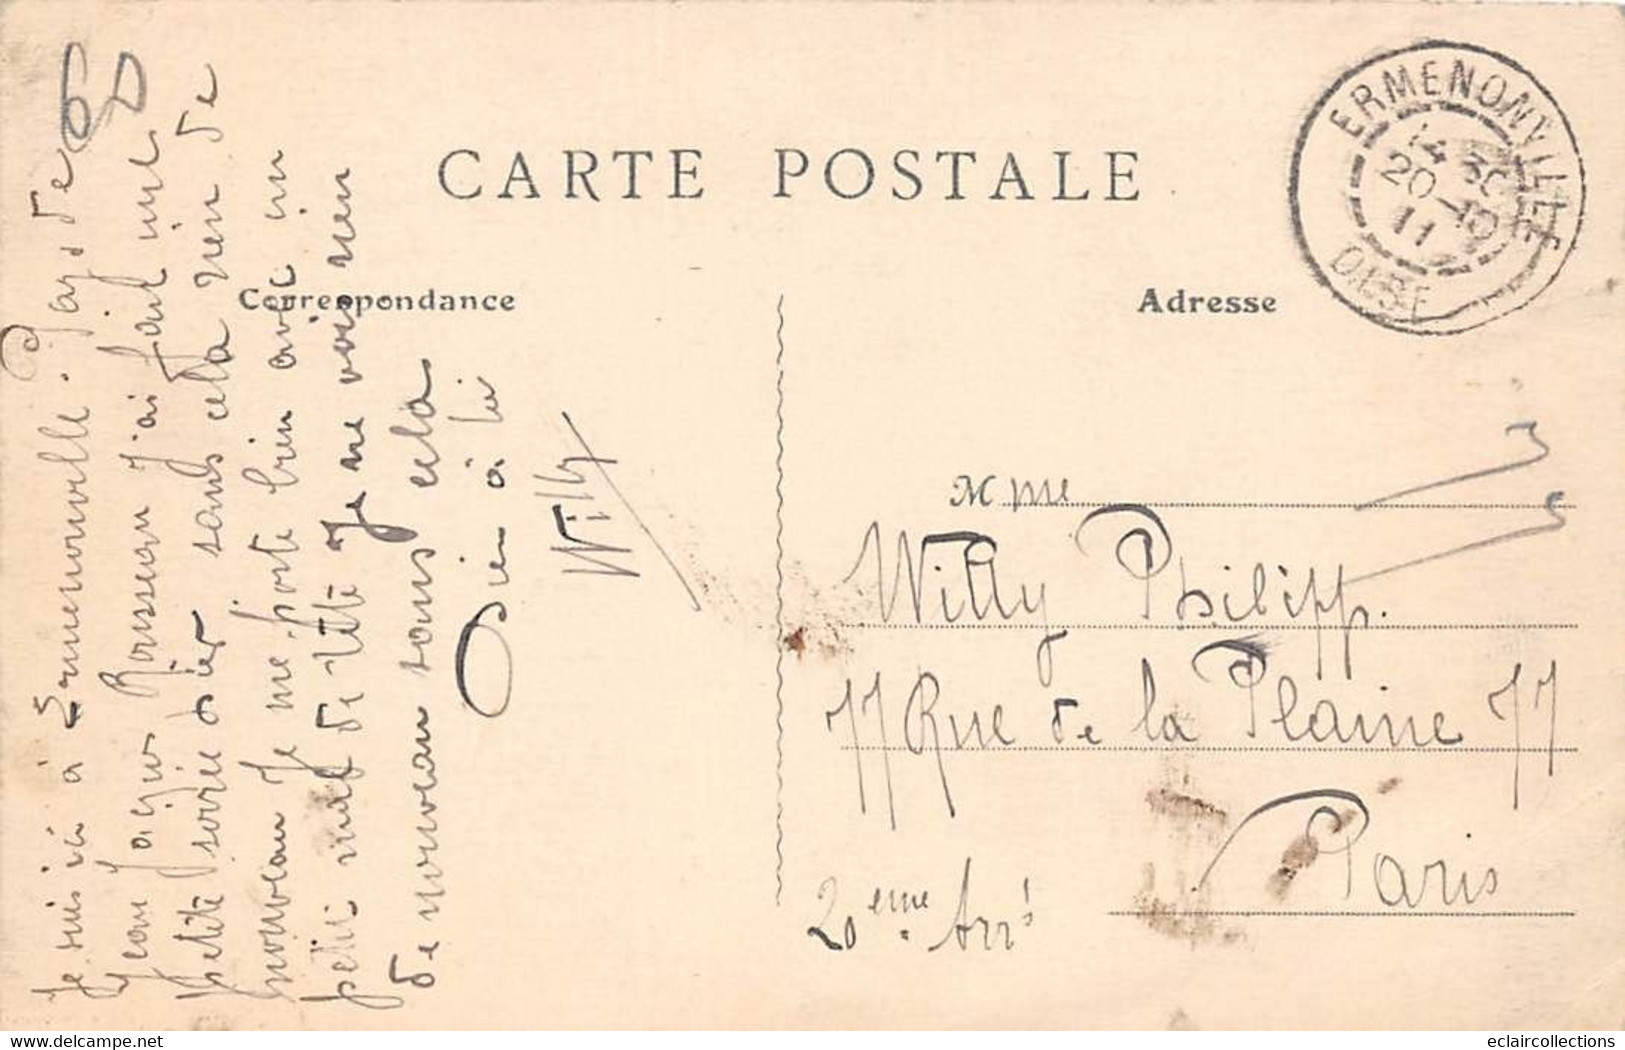 CARTE POSTALE
Correspondance
Adresse
ERMENONVILLE
14 30
20-10
11
OISE
Je suis ici à Ermenonville. Pays de
Jean Jacques Rousseau J'ai fait une
petite soirée hier sans cela rien de
nouveau Je me porte bien avec un
petit mal de tête Je ne vois rien
de nouveau sans cela
Bien à toi
Willy
Mme
Willy Philipp.
77 Rue de la Plaine 77
Paris
20eme Arrt
eclaircollections
www.delcampe.net